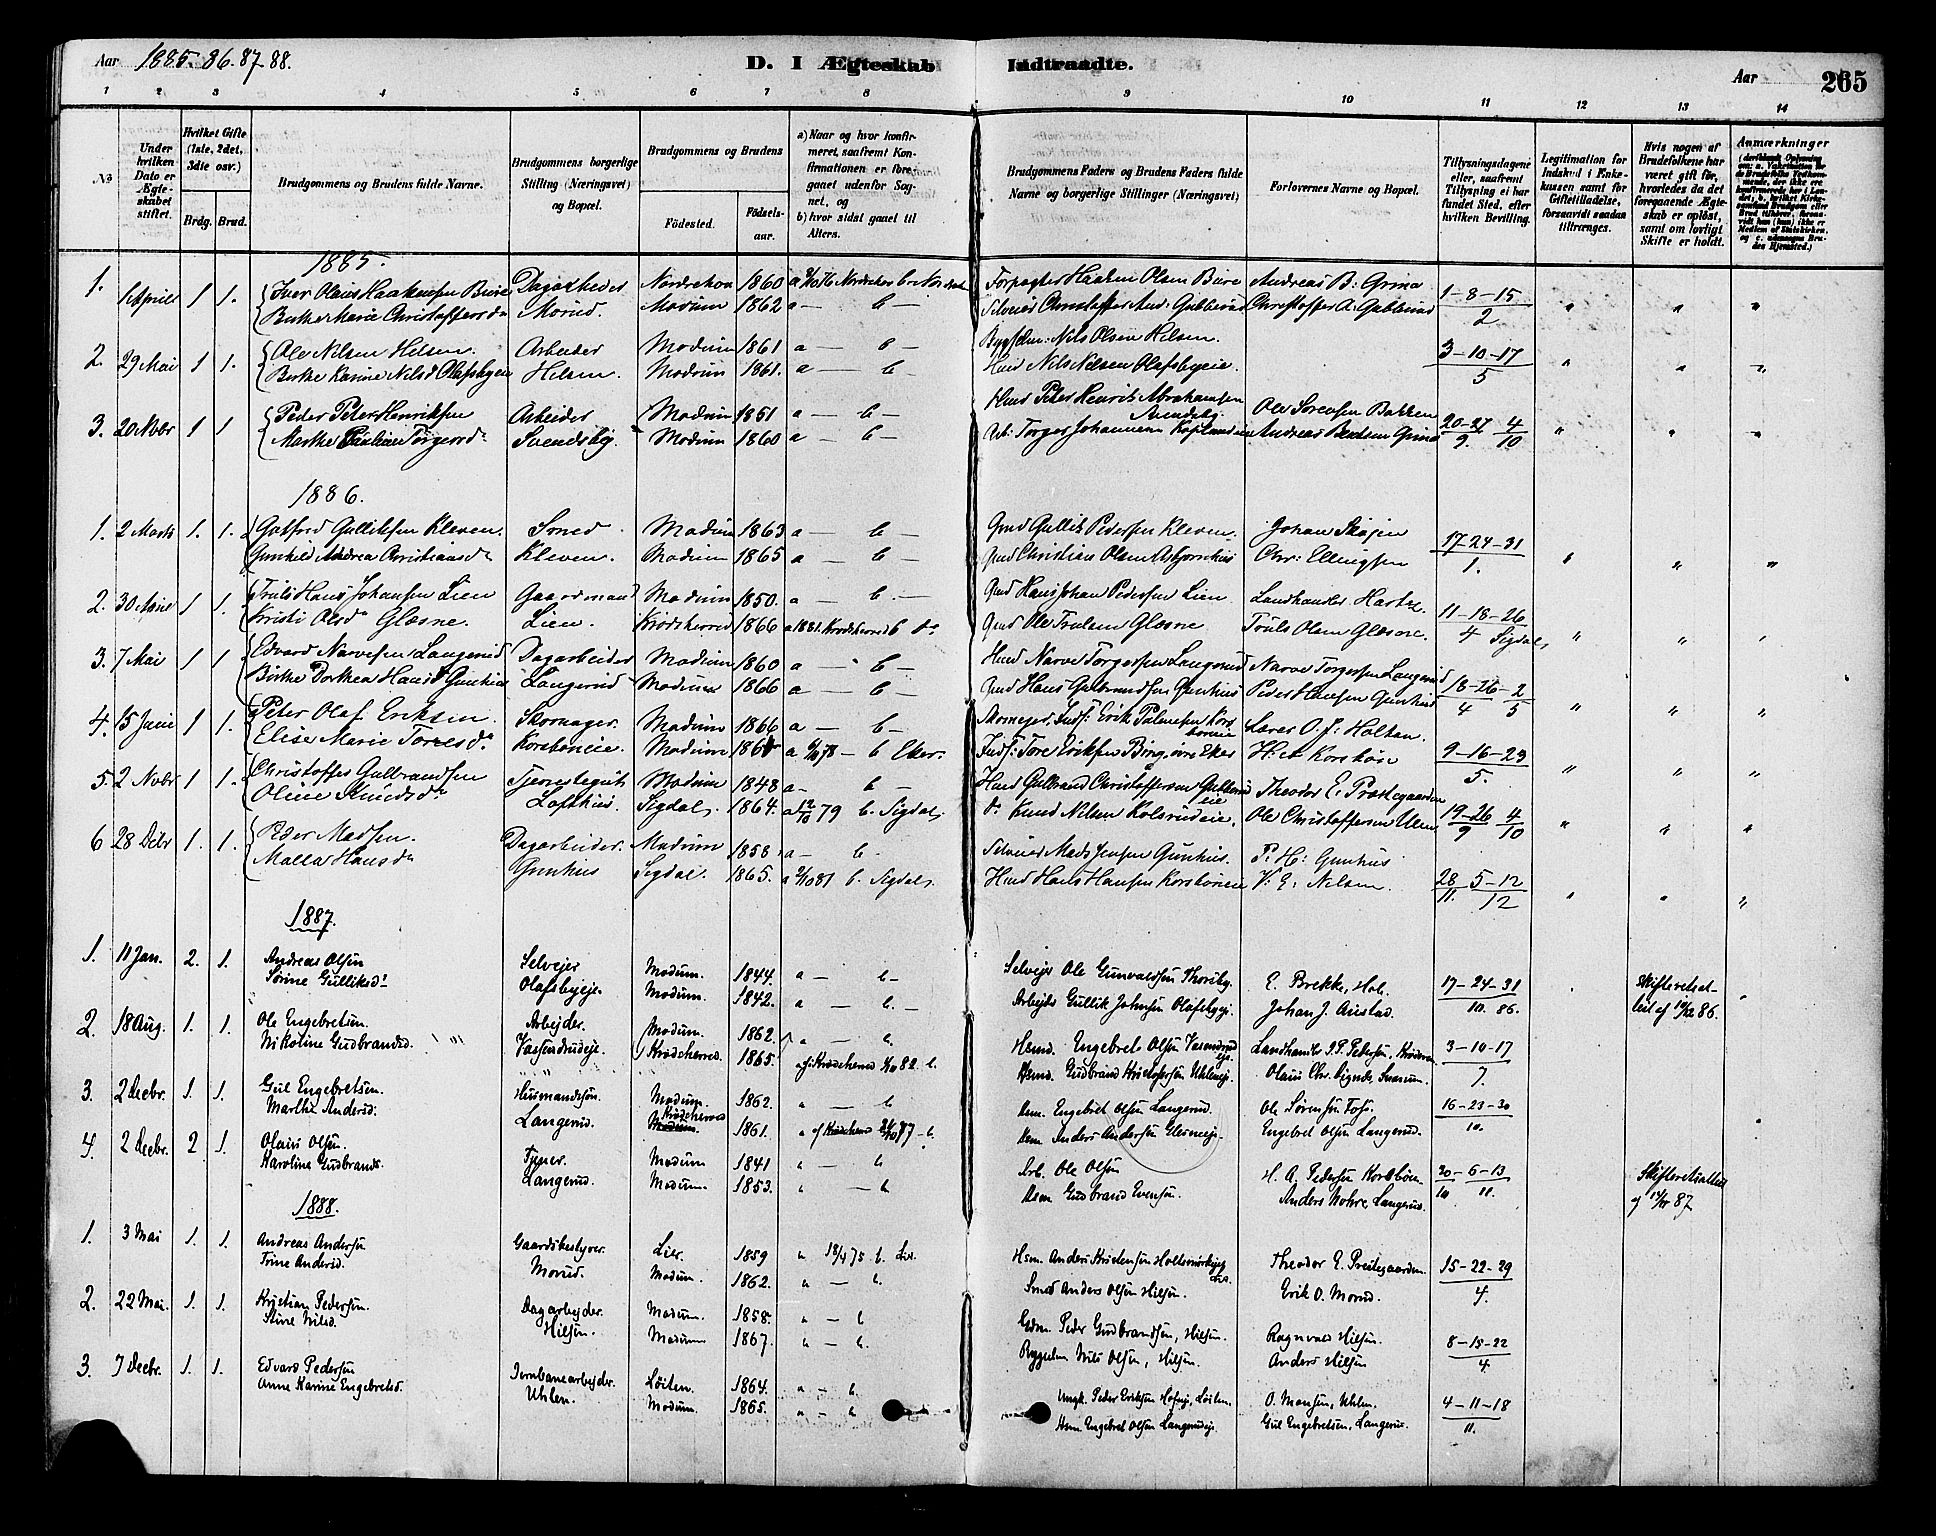 Aar 1885-86.87-88. D. I Ægteskab Indtraadte. Aar 265
1 2 3 4 5 6 7 8 9 10 11 12 13 14
No
Under hvilken Dato er Ægteskabet stiftet.
Hvilket Gifte (1ste, 2det, 3die osv.)
Brdg. Brud.
Brudgommens og Brudens fulde Navne.
Brudgommens borgerlige Stilling (Næringsvei) og Bopæl.
Brudgommens og Brudens
Födested. Födselsaar.
a) Naar og hvor konfirmeret, saafremt Konfirmationen er foregaaet udenfor Sognet, og
b) hvor sidst gaaet til Alters.
Brudgommens Faders og Brudens Faders fulde Navne og borgerlige Stillinger (Næringsvei)
Forlovernes Navne og Bopæl.
Tillysningsdagene eller, saafremt Tillysning ei har fundet Sted, efter hvilken Bevilling.
Legitimation for Indskud i Enkekassen samt for Giftetilladelse, forsaavidt saadan tiltrænges.
Hvis nogen af Brudefolkene har været gift før, hvorledes da det foregaaende Ægteskab er opløst, samt om lovligt Skifte er holdt.
Anmærkninger
1885.
1. 1 April 1 1. Iver Olaus Haakensen Bure Dagarbeider Nordrehov 1860 Forpagter Haaken Olsen Bure Andreas B. Grina 1-8-15
Berthe Marie Christoffersd Morud. Modum 1862 a — b — Christoffer A. Gubberud 2
2. 29 Mai 1 1. Ole Nilsen Hilsen. Arbeider Modum 1861 a — b — Nils Olsen Hilsen. 3-10-17
Berthe Karine Nilsd Olafsbyeie Hilsen. Modum 1861. a — b Hmd Nils Nilsen Olafsbyeie. 5
3. 20 Novbr 1 1 Peder Peter Henriksen Arbeider Modum 1851 a — b — Hmd Peter Henrik Abrahamsen Svendsby. Ole Sorensen Bakken 20-27 4
Marthe Torgersd. Svendsby. Modum 1860 a — b — Arb. Torger Johannesen Andreas Bentsen Grina 9. 10
1886.
1. 2 Marts 1. 1. Gotfred Gulliksen Kleven. Smed Modum 1863 a — b — Gmd Gullik Pedersen Kleven. Johan Skojen 17-24-31
Gunhild Andrea Christiansd. Kleven. Modum 1865 a — b — Gmd Christian Olsen Chr: Ellingsen 1.
2. 30 1 1. Truls Hans Johansen Lien Gaardmand Modum 1850. a — b. — Gmd Hans Johan Pedersen Lien Landhandler 11-18-26
Kristi Olsd. Glæsne. Lien. Krödsherred 1866 a 1881. Krödsherred b do Gmd Ole Trulsen Glæsne Truls Olsen Glæsne. 4 Sigdal
3. 7 Mai 1 1. Edvard Narvesen Langerud Dagarbeider Modum 1860 a — b — Hmd Narve Torgersen Langerud Narve Torgersen Langerud 18-26-2
Berthe Dorthea Hansd Gunhus Langerud Modum 1866 a — b — Gmd Hans Gulbrandsen Gunhus Peder Hansen Gunhus 4 5
4. 15 Juni 1 1. Peter Olaf Eriksen. Skomager. Modum 1866 a — b — Skomager, Inds: Erik Palmesen Korsböneie Lærer O. J. Holten. 9-16-23
Elise Marie Toresd. Korsböneie. Modum b Eker. Inds: Tore Eriksen Bing, övre Eker H. et Korsböen 5.
5. 2 Novbr 1 1. Christoffer Gulbrandsen Tjenestegut Modum 1848 a — b — Hmd Gulbrand Christoffersen Gubberudeie Theodor E. Præstegaarden 19-26 4
Oline Knudsd. Lofthus. Sigdal. 1864. 79 b. Sigdal. Do Knud Nilsen Kolsrudeie. Ole Christoffersen Ulen 9 10
6 28 Debr 1. 1. Peder Madsen. Dagarbeider. Modum 1858. a — b. Selveier Mads Jensen Gunhus. P. H: Gunhus 28 5-12
Malla Hansd. Gunhus Sigdal. 1865. b. Sigdal. Hmd Hans Hansen Korsböneie V: E: Nilsen. 11. 12
1887.
1. 11 Jan. 2. 1. Andreas Olsen Selvejer Modum. 1844. a — b — Selvejer Ole Gunvaldsen Thoresby. E. Brekke, Hol. 17-24-31 Skifteretsat-
Sørine Gulliksd. Olafsbyeje. Modum. 1842. a — b — Arbejder Gullik Johnsen Olafsbyeje. Johan J. Aulstad. 10. 86. test af 12/12 86.
2. 18 Aug. 1. 1. Ole Engebretsen. Arbejder. Modum. 1862. a — b. Hsmd. Engebret Olsen Landhandler P. Pedersen, Krøderen 3-10-17
Nikoline Gudbrandsd. Krödsherred. 1865. af Krødsherred 82. b. Hsmd. Gudbrand Kristofersen Uhleneje. Olaus Chr. 7.
3. 2 Decbr. 1. 1. Gul Engebretsen. Husmandssøn. Modum. 1862. a — b Hsm. Engebret Olsen Langerud. Ole Sørensen Foss. 16-23-30
Marthe Andersd. Langerud. Krödsherred 1861. a af Krødsherred 77 — b. Hsm Anders Andersen Glesneeje. Engebret Olsen Langerud. 10.
4. 2 Decbr. 2 1. Olaus Olsen. Tjener. Modum 1841 a — b Arb. Ole Olsen H. A. Pedersen Korsböen. 30-6-13 Skifteretsattest
Karoline Gudbrands. Langerud. Modum. 1853. a — b Hsm Gudbrand Evensen. Anders Langerud. 10 11. 87
1888.
1. 3 Mai 1. 1. Andreas Andersen Gaardsbestyrer Lier. 1859 a 18/4 75 b. Lier. Hsm. Anders Kristensen Theodor E. Prestegaarden. 15-22-29
Trine Andersd. Morud. Modum. 1862. a — b. Smed Anders Olsen Hilsen. Erik O. Morud. 4.
2. 22 Mai. 1. 1. Kristian Pedersen. Dagarbejder. Modum. 1858. a — b Peder Gudbrandsen, Hilsen. Ragnvald Hilsen. 8-15-22
Stine Nilsd. Hilsen. Modum 1867. a — b. Nils Olsen, Hilsen. Anders Hilsen 4.
3. 7 Decbr. 1. 1. Edvard Pedersen Jernbanearbejder. Løiten. 1864. a — b. Peder Eriksen Løiten. O. Monsen, Uhlen. 4-11-18
Anne Karine Engebretsd. Uhlen. Modum. 1865. a — b Hsm Engebret Olsen Langerudeje. Gul Engebretsen, Langerud. 11.